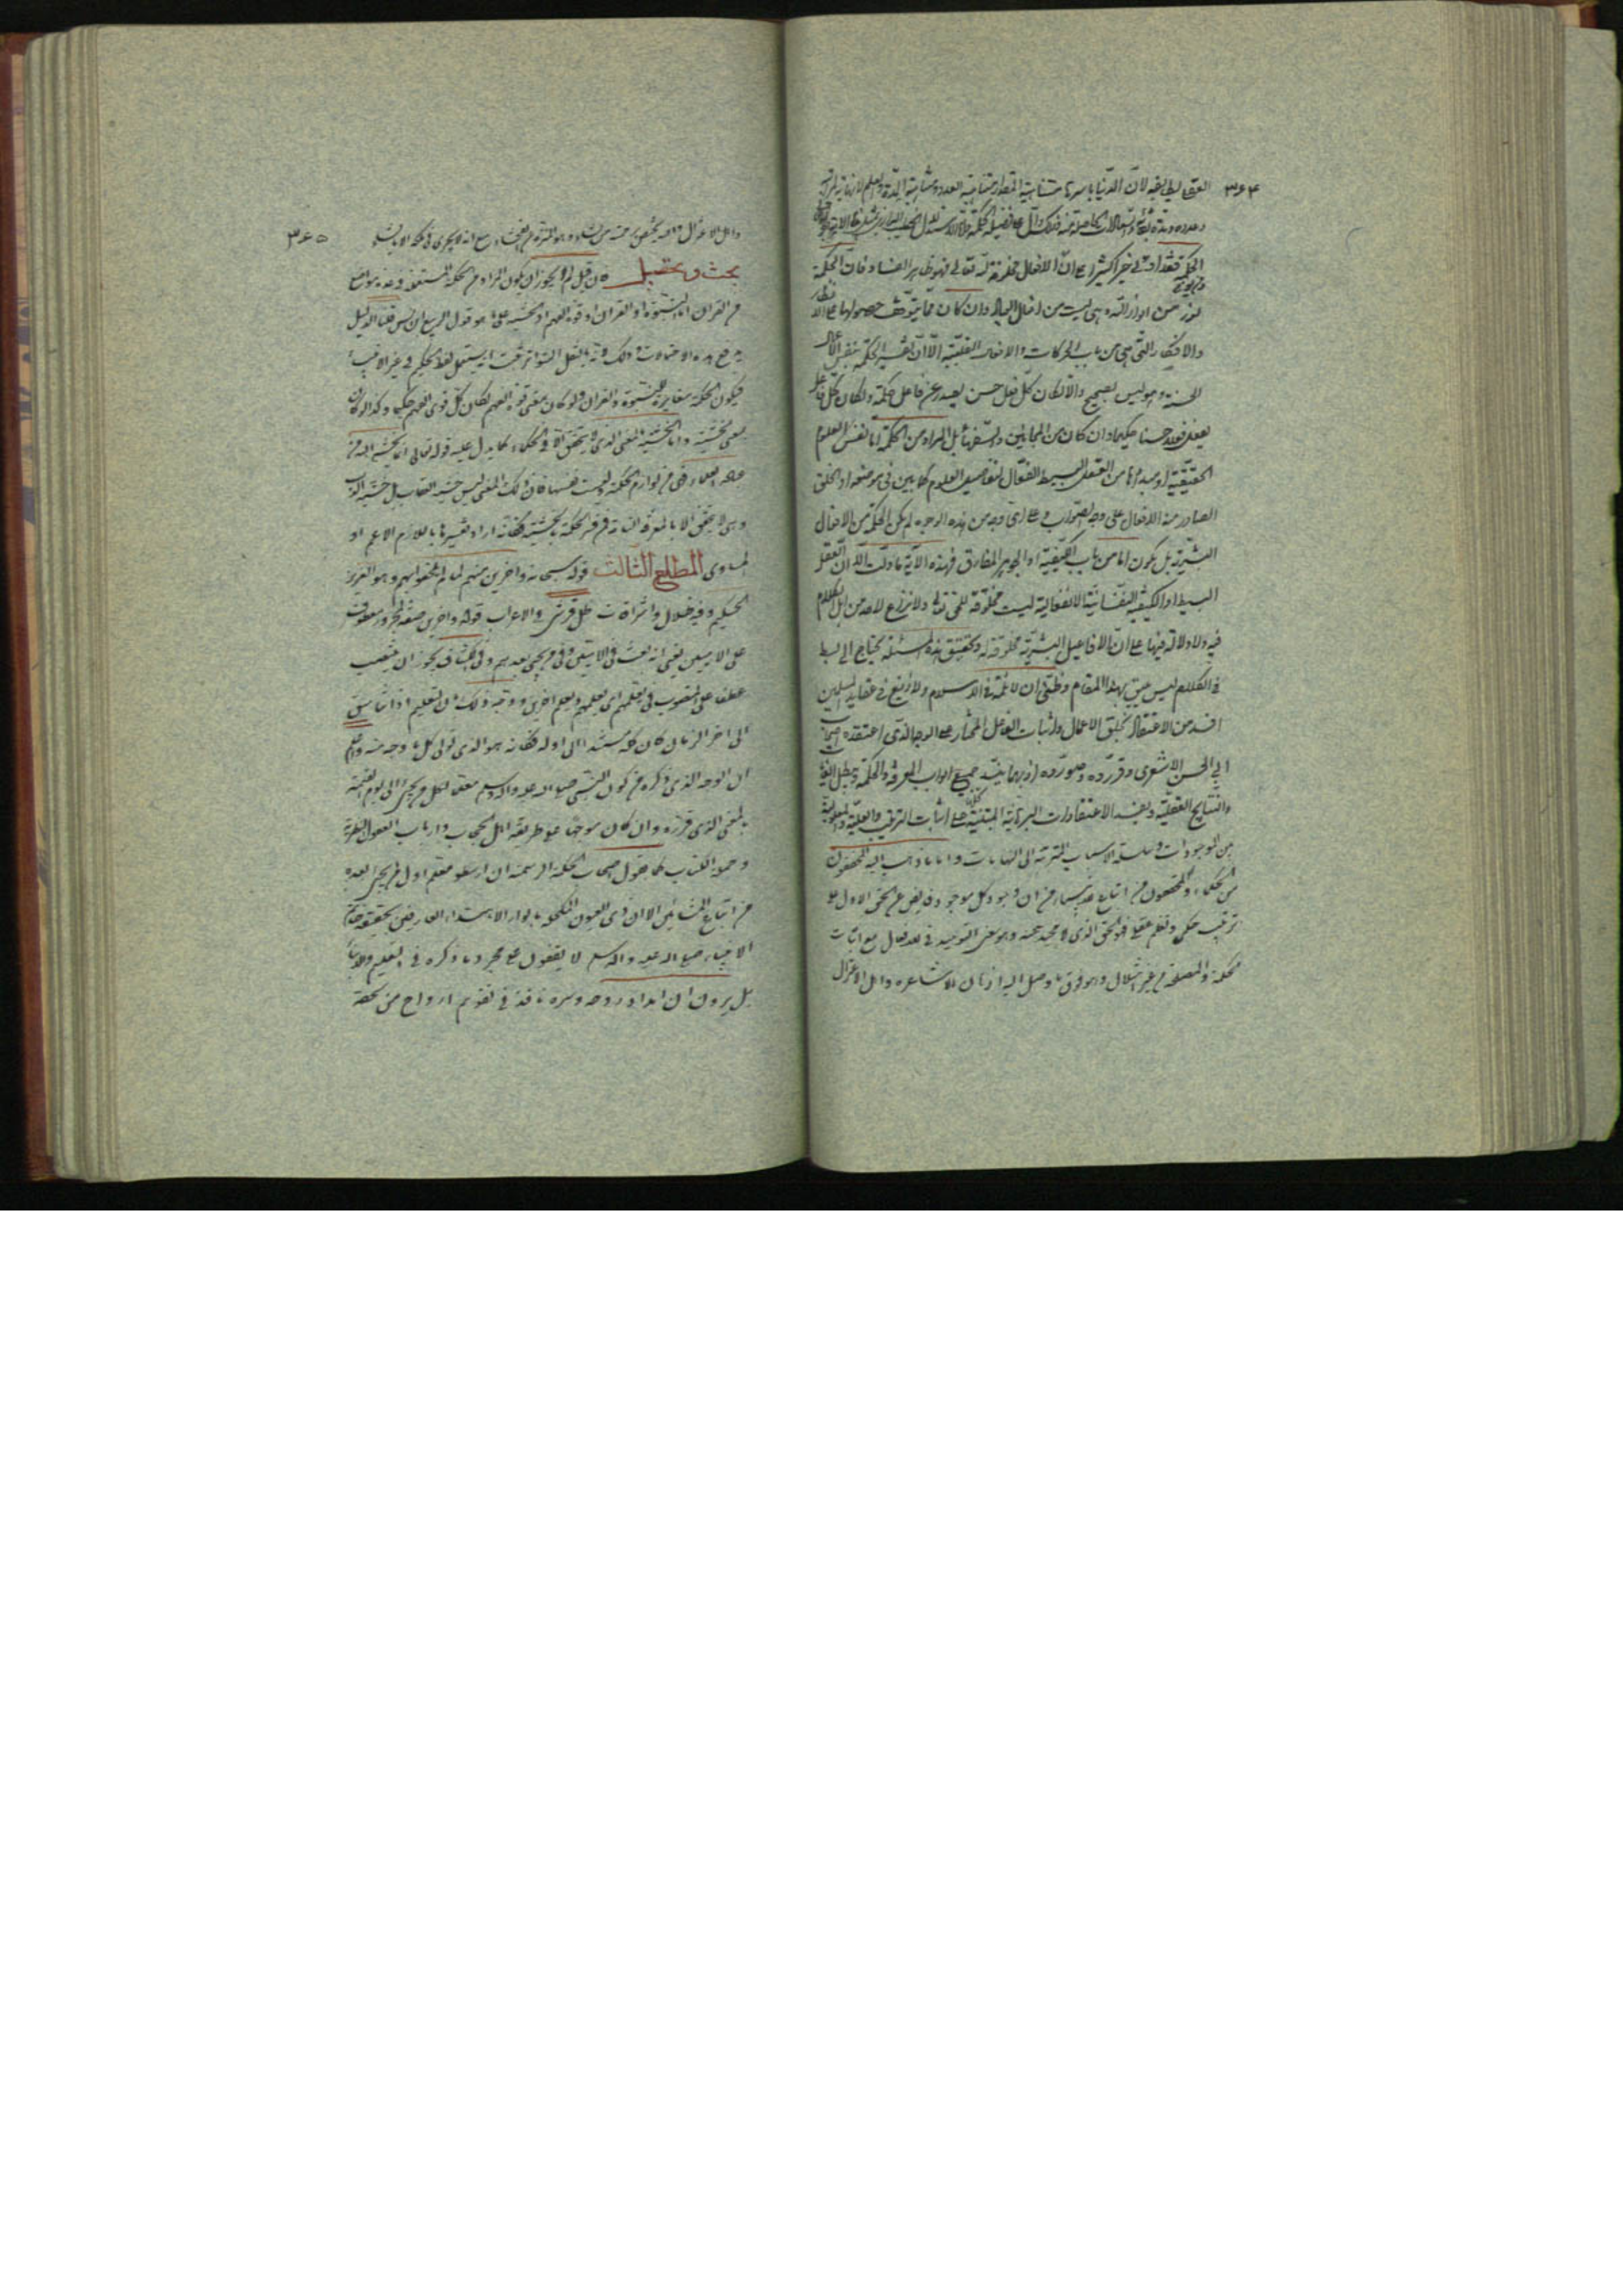 ٣۶۴
العقل يطابقه لان الدنيا باسرها متناهية المقدار متناهية العدد ومتناهية المدة والعلم لا نهاية لمراتبه
وعدده ومدة بقائه والسعادات الحاصلة منه فذلك دال على فضيلة الحكمة
الحكمة فقد اوتى خيرا كثيرا على ان الافعال مخلوقة له تعالى فهو ظاهر الفساد فان الحكمة
نور من انوار الله وهى ليست من افعال العباد وان كان مما يتوقف حصولها على الانظار
والافكار التى هى من باب الحركات والافعال القلبية الا ان تفسير الحكمة بنفس الافعال
الحسنة وهو ليس بصحيح والا لكان كل فعل حسن يصدر عن فاعل حكمة ولكان كل فاعل
يفعل فعلا حسنا حكيما وان كان من المجانين والسفهاء بل المراد من الحكمة اما نفس العلوم
الحقيقية او مبدءها من العقل البسيط الفعال لتفاصيل العلوم كما بين فى موضعه او الخلق
الصادر منه الافعال على وجه الصواب وعلى اى وجه من هذه الوجوه لم يكن الحكمة من الافعال
البشرية بل يكون اما من باب الكيفية او الجوهر المفارق فهذه الآية ما دلت الا ان العقل
البسيط او الكيفية النفسانية الانفعالية ليست مخلوقة للحق تعالى ولا نزاع لاحد من اهل الكلام
فيه ولا دلالة فيها على ان الافاعيل البشرية مخلوقة له وتحقيق هذه المسئلة يحتاج الى بسط
فى الكلام ليس يليق بهذا المقام وظنى ان لا ثلمة فى الاسلام ولا زيغ فى عقايد المسلمين
افسد من الاعتقاد بخلق الاعمال واثبات الفاعل المختار على الوجه الذى اعتقده اصحاب
ابى الحسن الاشعرى وقرروه وصوروه اذ بهما ينسد جميع ابواب المعرفة والحكمة ويبطل
والنتايج العقلية ويفسد الاعتقادات البرهانية المبتنية كلها على اثبات الترتيب والعلية والمعلولية
بين الموجودات وسلسلة الاسباب المترتبة الى النهايات واما ما ذهب اليه المحققون
من الحكماء والمحققون من اتباع من ان وجود كل موجود فايض عن الحق الاول على
ترتيب حكمى ونظم عقلى فهو الحق الذى لا محيد عنه وهو معنى التوحيد فى الافعال مع اثبات
الحكمة والمصلحة من غير اختلال وهو فوق ما وصل اليه اذهان الاشاعرة واهل الاعتزال
٣۶۵
واهل الاعتزال من يشاء وهو التنزه عن الفحشاء مع انه لا يجرى فى ملكه الا ما يشاء
بحث وتحصيل فان قيل لم لا يجوز ان يكون المراد من الحكمة المستعملة فى عدة مواضع
من القران اما النبوة او القران او قوة الفهم او الخشية على ما هو قول الربيع ابن انس قلنا الدليل
يدفع هذه الاحتمالات وذلك لانه بالنقل المتواتر ثبت انه يستعمل لفظ الحكيم فى غير الانبياء
فيكون الحكمة مغايرة للنبوة والقران ولو كان معنى قوة الفهم لكان كل قوى الفهم حكيما وكذا لو كان
بمعنى الخشية واما الخشية بالمعنى الذى لا يتحقق الا فى الحكماء كما يدل عليه قوله تعالى انما يخشى الله من
عباده العلماء فهى من لوازم الحكمة وليست نفسها فان ذلك المعنى ليس خشية العقاب بل خشية
وهى لا يتحقق الا بالمعرفة التامة فمن فسر الحكمة بالخشية فكانه اراد تفسيرها باللازم الاعم او
المساوى المطلع الثالث قوله سبحانه واخرين منهم لما يلحقوا بهم وهو العزيز
الحكيم وفيه خلال واشراقات ظل فرشى والاعراب قوله واخرين صفة لمجرور معطوف
على الاميين يعنى انه بعث فى الاميين وفى من يجئ بعدهم وفى الكشاف يجوز ان ينتصب
عطفا على المنصوب فى يعلمهم اى يعلمهم ويعلم اخرين ووجه ذلك ان التعليم اذا تناسق
الى اخر الزمان كان كله مستندا الى اوله فكانه هو الذى تولى كل ما وجد منه واعلم
ان الوجه الذى ذكره من كون النبى صلى الله عليه واله وسلم معلما لكل من يجئ الى يوم القيمة
بالمعنى الذى قرره وان كان موجها على طريقة اهل الحجاب وارباب العقول النظرية
وحملة الكتاب كما يقول اصحاب الحكمة الرسمية ان ارسطو معلم اول لمن يجئ بعده
من اتباع المشائين الا ان ذوى العيون المكحلة بانوار الاهتداء العارفين بحقيقة خاتم
الانبياء صلى الله عليه واله وسلم لا يقفون على مجرد ما ذكره فى التعليم والارشاد
بل يرون ان امداد روحه وسره نافذة فى تقويم ارواح من لحقه